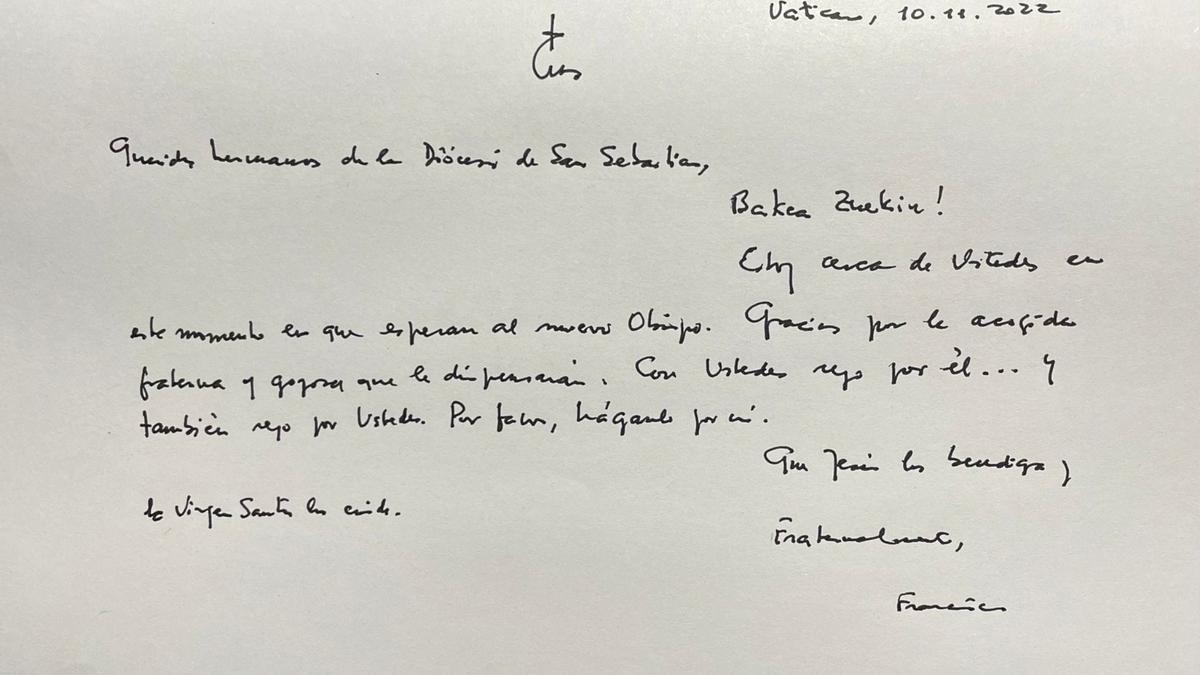 Vaticano, 10.11.2022
Queridos hermanos de la Diócesis de San Sebastian,
Bakea Zuekin!
Estoy cerca de Ustedes en
este momento en que esperan al nuevo Obispo. Gracias por la acogida
fraterna y gozosa que le dispensarán. Con Ustedes rezo por él... Y
también rezo por Ustedes. Por favor, háganlo por mí.
Que Jesús los bendiga y
la Virgen Santa los cuide.
Fraternalmente,
Francisco